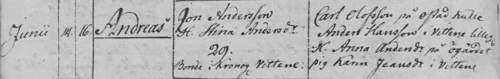 Junii 14. 16. Andreas
Jon Andersson
H. Stina Andersdr
29.
Bonde i Kronog Vittene:
Carl Olofsson på
Anders Hansson i Vittene
H. Anna Andersdr på ögärdet
pig Karin Jeansdr i Vittene